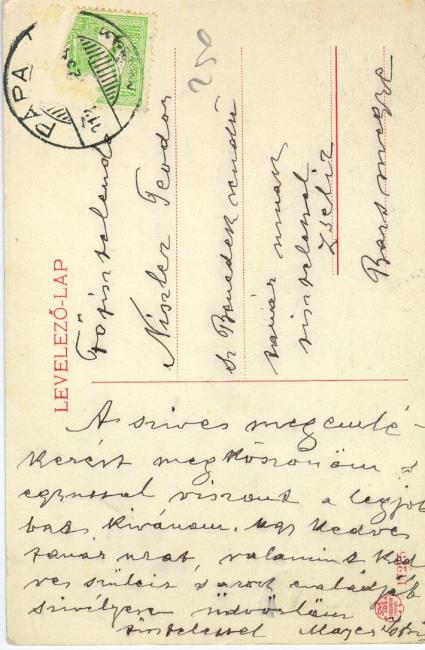 PÁPA
250
LEVELEZŐ-LAP
Főtisztelendő
Niszler Teodor
Sz Benedek rendü
tanár urnak
tisztelettel
Zseliz
Bars megye
A szives megemlé-
kezést megköszönöm s
egyuttal viszont a legjob
bat kivánom. Ugy kedves
tanár urat, valamint ked
ves szüleit s azok családját
szivélyesen üdvözlöm
tisztelettel Mayer